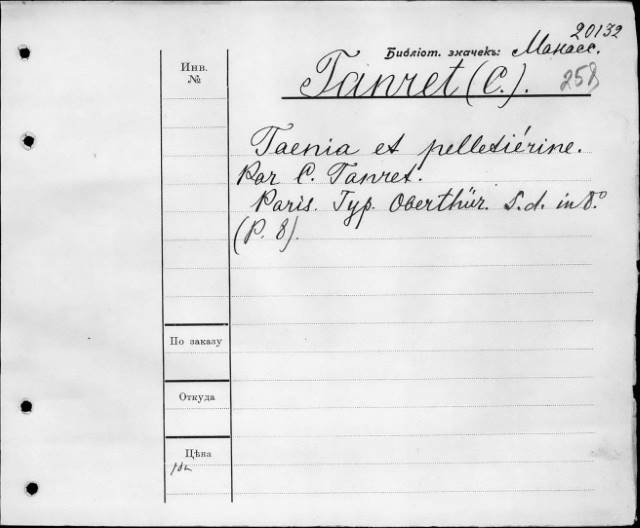 20132
Библіот. значекъ: Манасс.
Инв.
№
Tanret (C.).
258
Taenia et pelletiérine.
Par C. Tanret.
Paris. Typ. Oberthür. S.d. in 8.º
(P. 8).
По заказу
Откуда
Цѣна